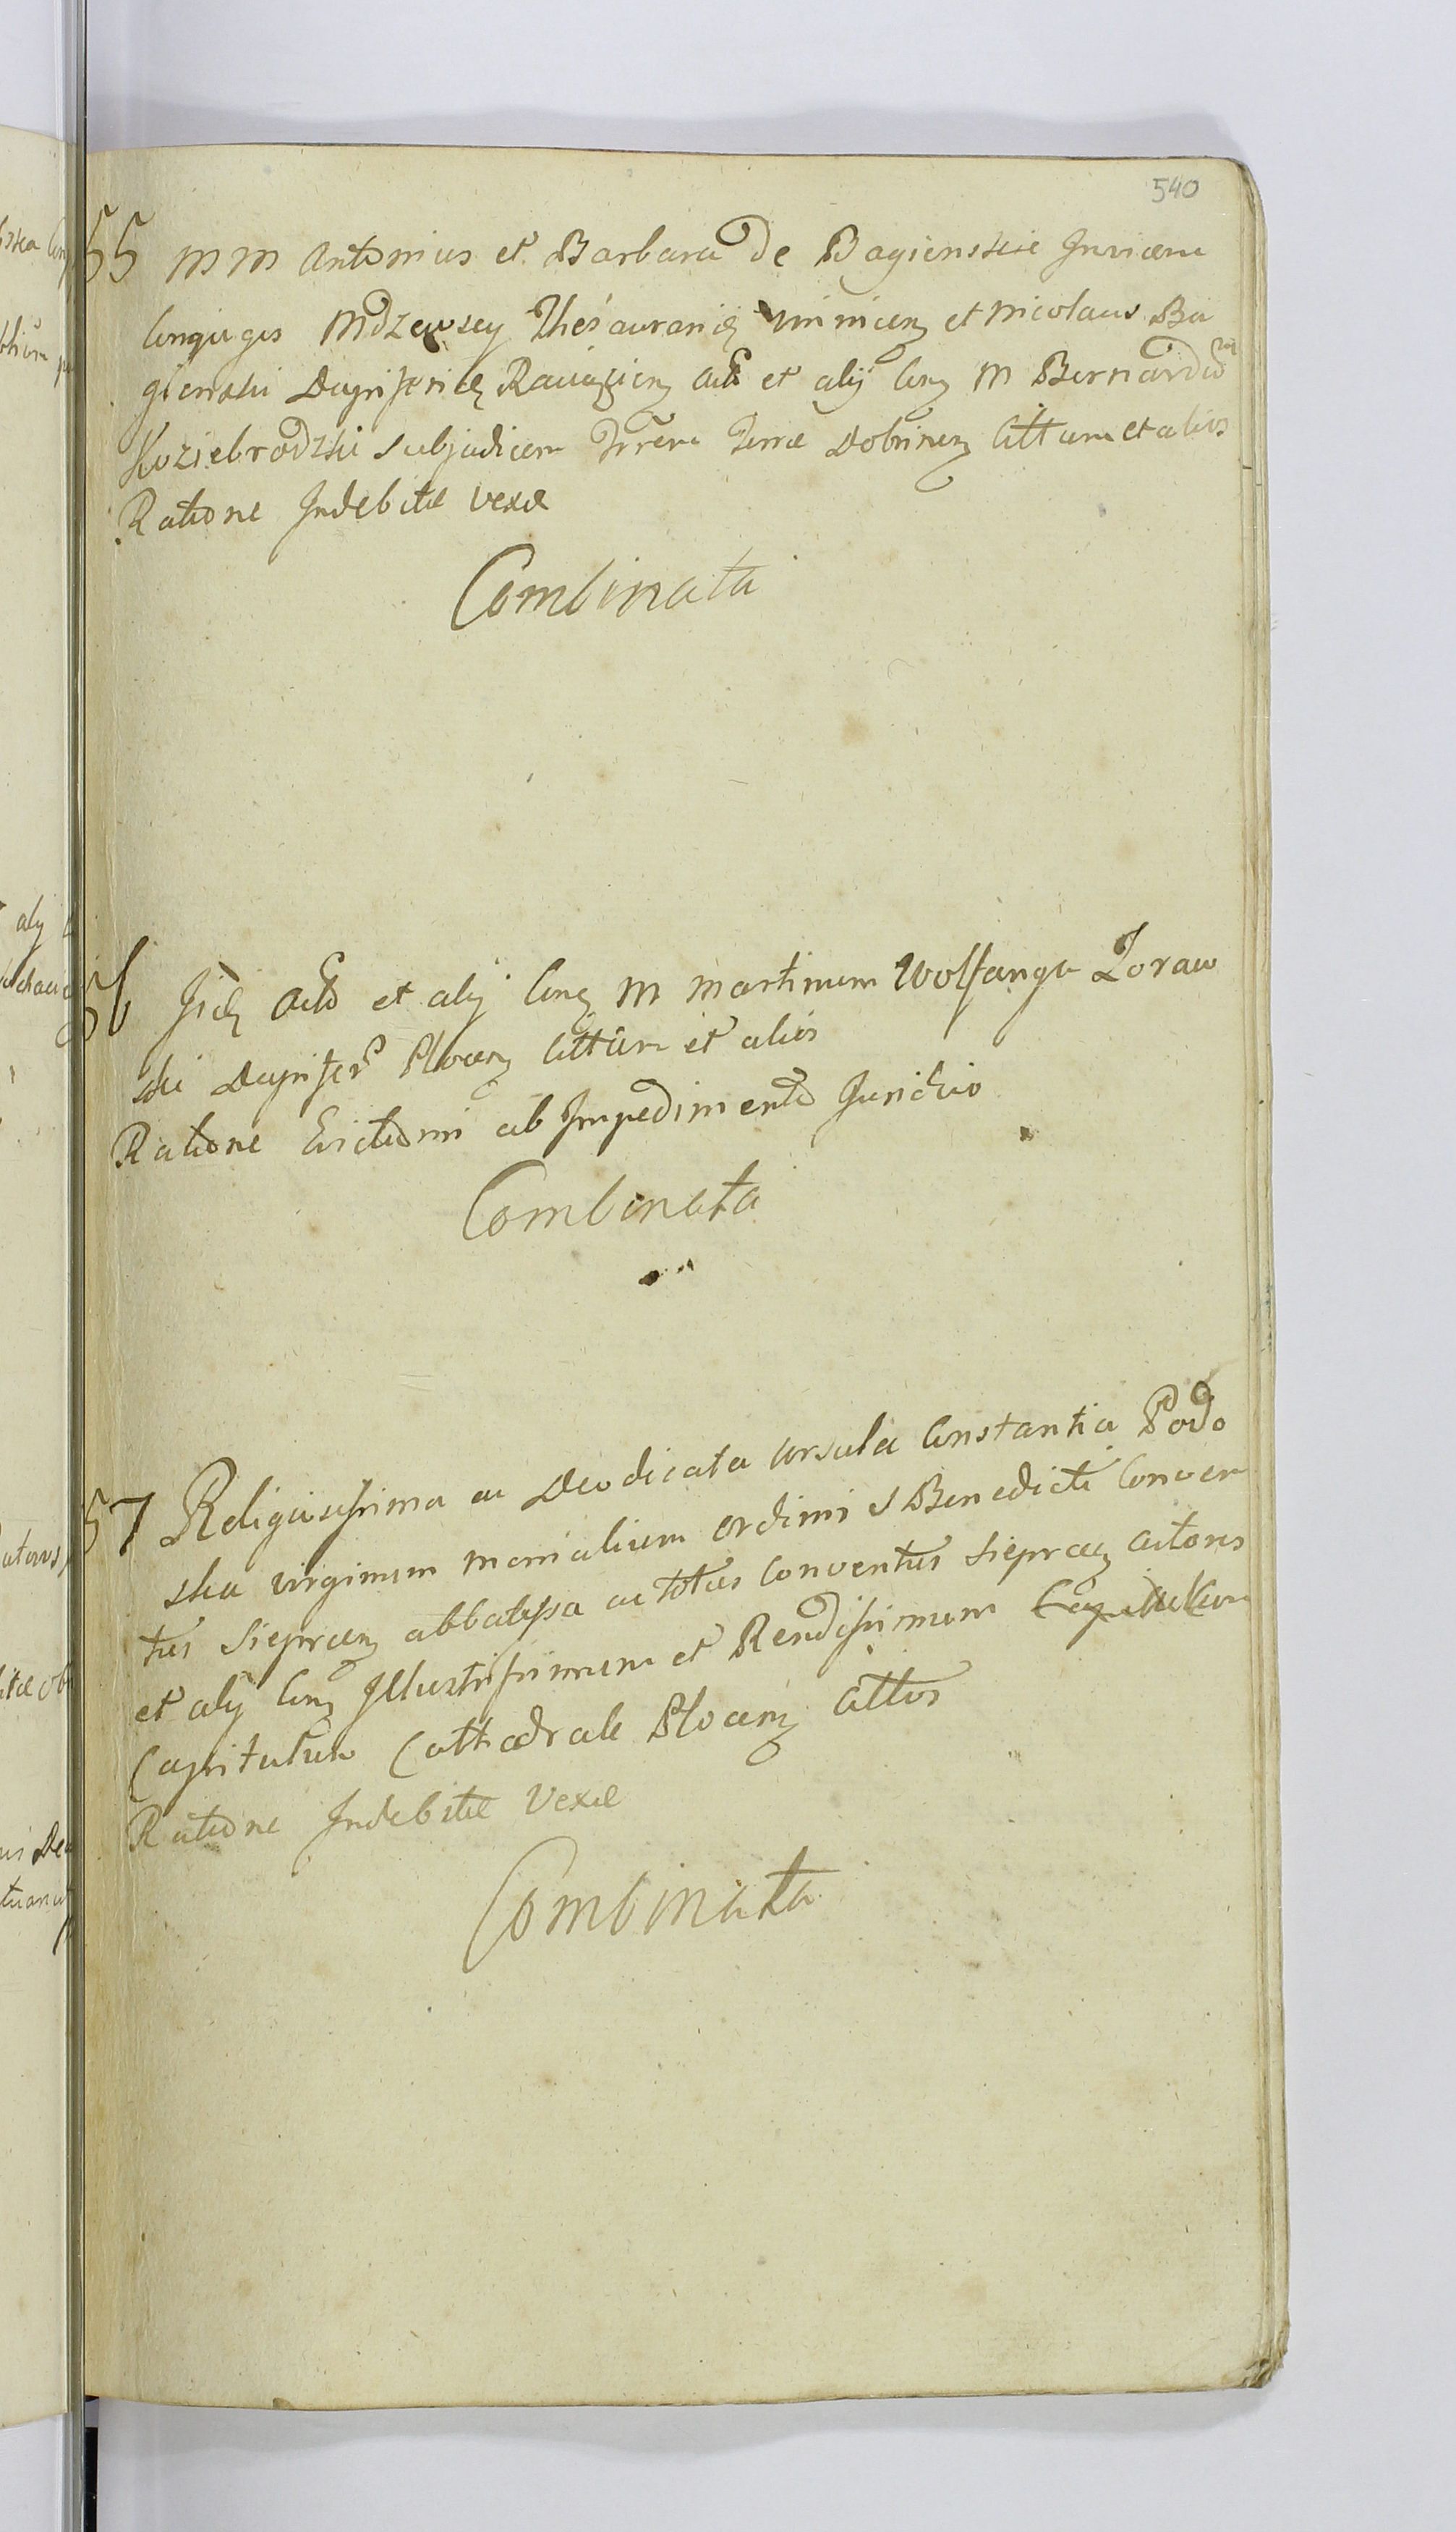 540
55 MM Antonius et Barbara de Bagienskie Invicem
Conjuges Mdzewscy Thesaurarid Vinnicen et Nicolaus Ba
gienski Dapiferid Raciązien Act et alij Con M Bernardū
Koziebrodzki Subjudicem Trrēm Terræ Dobrinen Cittum et alios
Ratione Indebitæ Vexæ
Combinata
56 Iid Acto et alij Con M Martinum Wolfanga Zoraw
ski Dapifer Plocen Cittūm et alios
Ratione Evictioni ab Impedimento Juridico
Combinata
57 Religiosissima ac Deo dicata Ursula Constantia Podo
ska Virginum Monialium Ordinis S Benedicti Conven
tus Sieprcen Abbatissa ac totus Conventus Sieprcen Actores
et alij Con Illustrissimum et Rendissimum Capitulum
Capitulum Cathædrale Plocen Cittos
Ratione Indebitæ Vexæ
Combinata